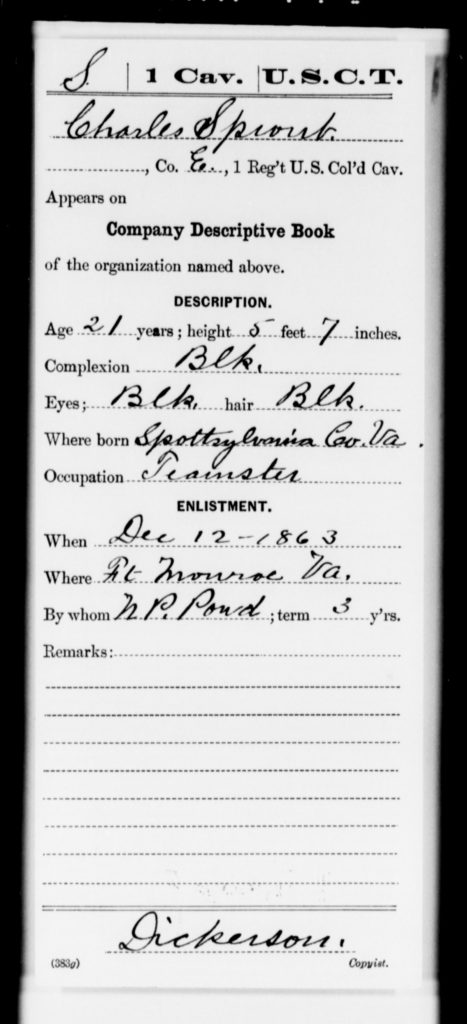 S. | 1 Cav. | U.S.C.T.
Charles Sprout.
, Co. E., 1 Reg't U.S. Col'd Cav.
Appears on
Company Descriptive Book
of the organization named above.
DESCRIPTION.
Age 21 years; height 5 feet 7 inches.
Complexion Blk.
Eyes; Blk. hair Blk.
Where born Spottsylvania Co. Va.
Occupation Teamster
ENLISTMENT.
When Dec 12-1863
Where Ft Monroe Va.
By whom N P. Pond; term 3 y'rs.
Remarks:
Dickerson.
(383g) Copyist.